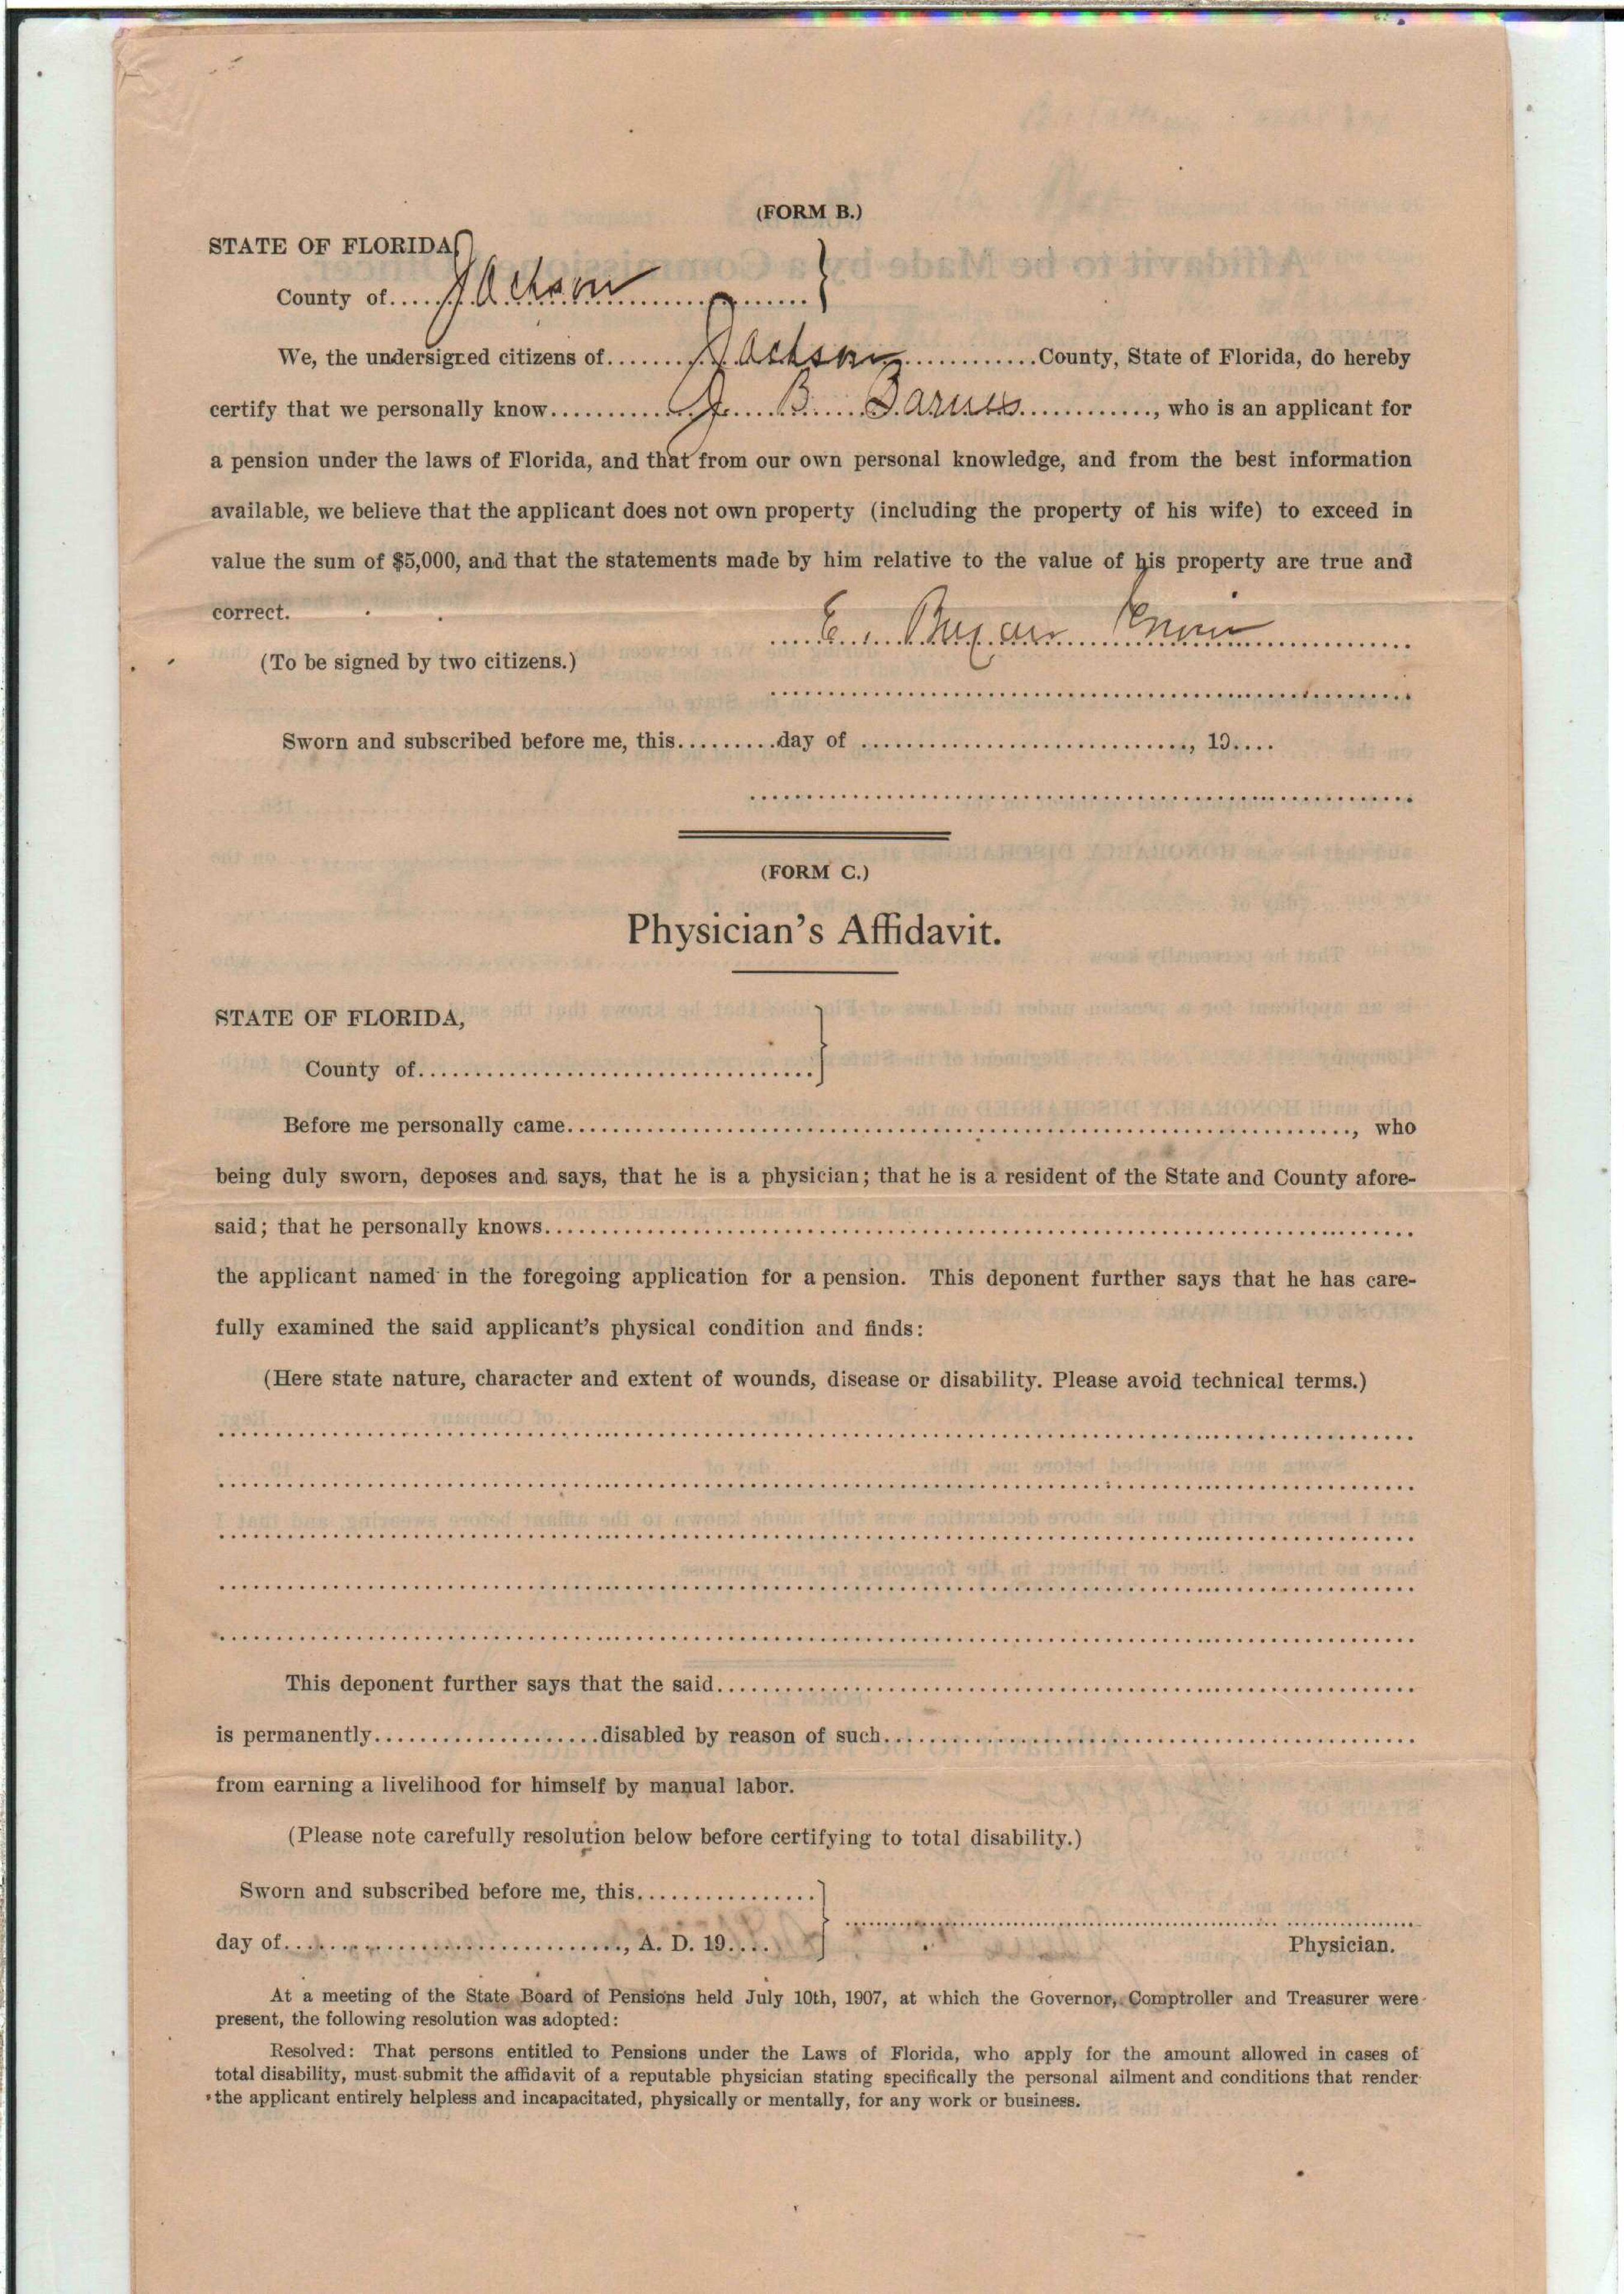 (FORM B.)
STATE OF FLORIDA,
County of Jackson
We, the undersigned citizens of Jackson County, State of Florida, do hereby
certify that we personally know J. B. , who is an applicant for
a pension under the laws of Florida, and that from our own personal knowledge, and from the best information
available, we believe that the applicant does not own property (including the property of his wife) to exceed in
value the sum of $5,000, and that the statements made by him relative to the value of his property are true and
correct.
E.
(To be signed by two citizens.)
Sworn and subscribed before me, this..........day of ................................., 19....
(FORM C.)
Physician's Affidavit.
STATE OF FLORIDA,
County of........................................
Before me personally came................................................................................, who
being duly sworn, deposes and says, that he is a physician; that he is a resident of the State and County afore-
said; that he personally knows........................................................................................
the applicant named in the foregoing application for a pension. This deponent further says that he has care-
fully examined the said applicant's physical condition and finds:
(Here state nature, character and extent of wounds, disease or disability. Please avoid technical terms.)
This deponent further says that the said......................................................................
is permanently.......................disabled by reason of such.....................................................
from earning a livelihood for himself by manual labor.
(Please note carefully resolution below before certifying to total disability.)
Sworn and subscribed before me, this..................
day of..................................., A. D. 19....
Physician.
At a meeting of the State Board of Pensions held July 10th, 1907, at which the Governor, Comptroller and Treasurer were
present, the following resolution was adopted:
Resolved: That persons entitled to Pensions under the Laws of Florida, who apply for the amount allowed in cases of
total disability, must submit the affidavit of a reputable physician stating specifically the personal ailment and conditions that render
the applicant entirely helpless and incapacitated, physically or mentally, for any work or business.